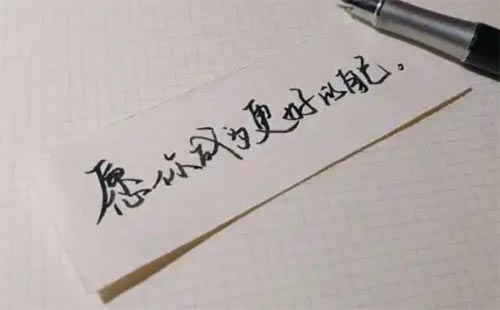 愿你成为更好的自己。